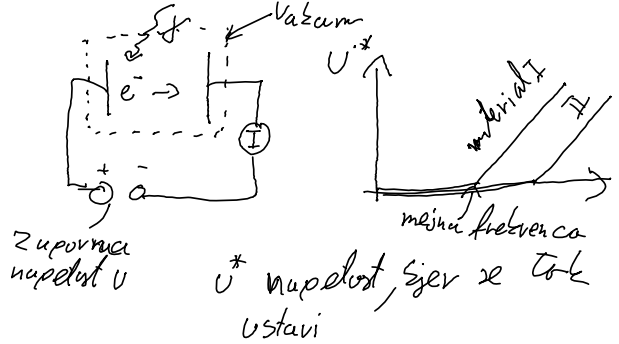 Vakuum
e⁻ →
I
+ -
Zaporna
napetost U
U*
material I
II
mejna frekvenca
U* napetost, kjer se tok
ustavi